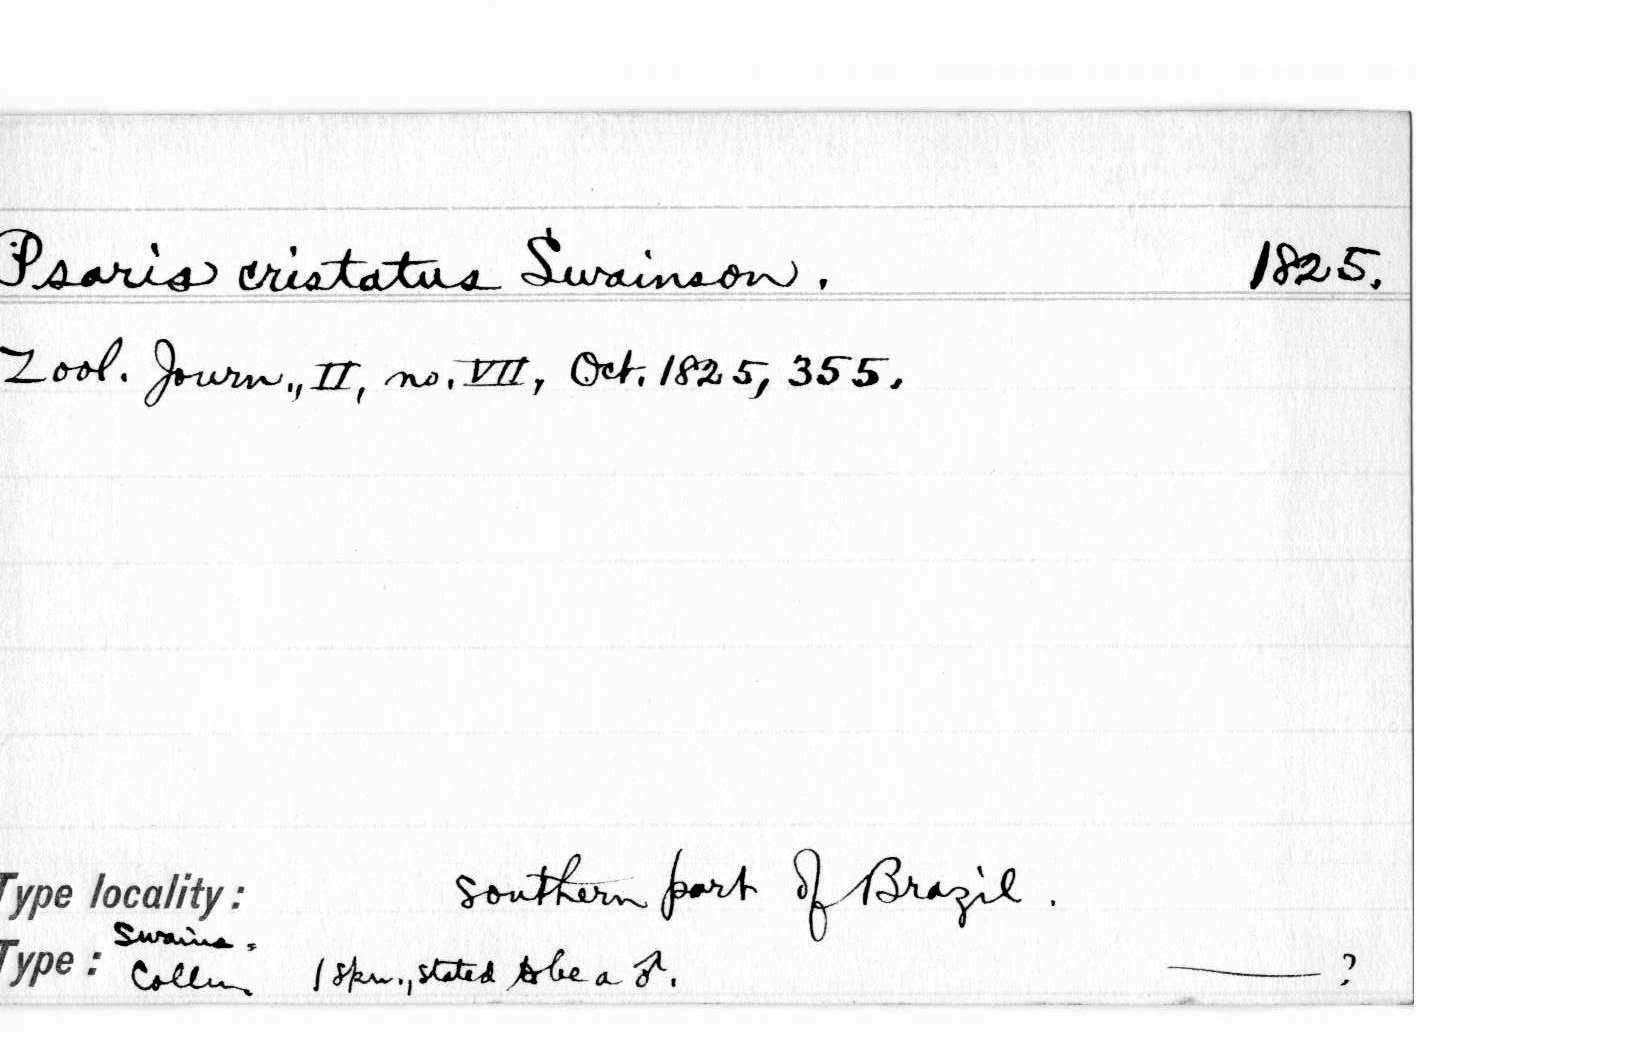 Psaris cristatus Swainson. 1825.
Zool. Journ., II, no. VII, Oct. 1825, 355.
Type locality: southern part of Brazil.
Swains.
Type: Colln. 1 spm., stated to be a ♂. ?